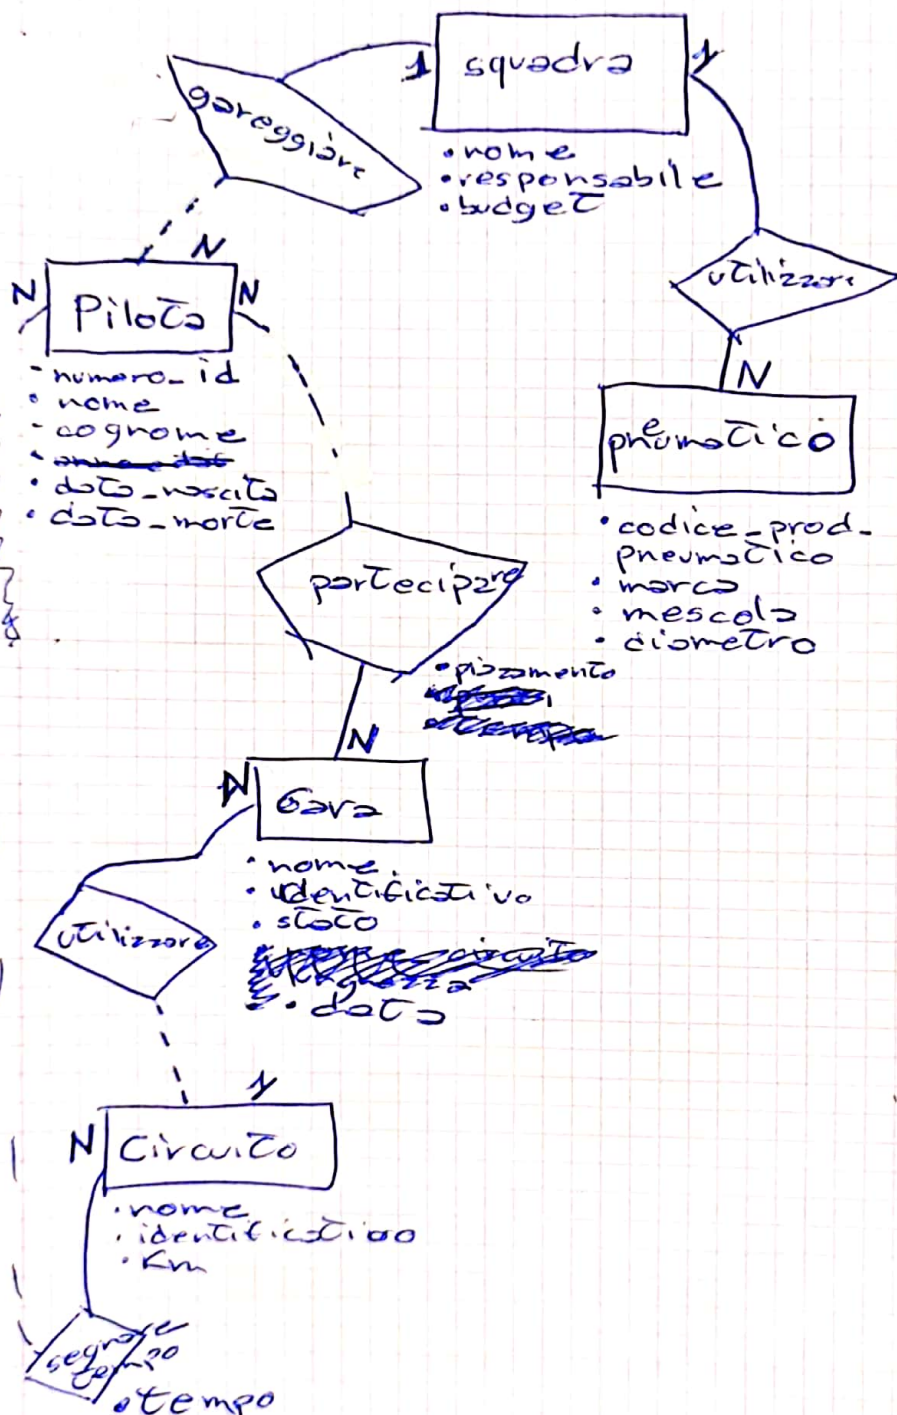 1 squadra 1
gareggiare
• nome
• responsabile
• budget
N
utilizzare
N Piloto N
N
• numero_id
• nome
• cognome
• data_nascita
• data_morte
pneumatico
• codice_prod_
pneumatico
• marca
• mescola
• diametro
partecipare
• piazzamento
N
N Gara
• nome
• identificativo
• stato
• data
utilizzare
1
N Circuito
• nome
• identificativo
• Km
segnare
tempo
• tempo